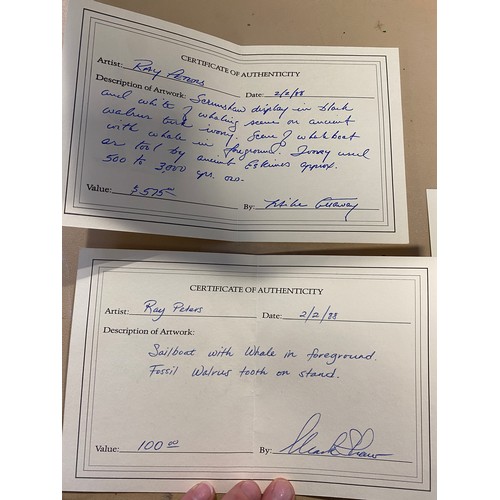 CERTIFICATE OF AUTHENTICITY
Artist: Ray Peters Date: 2/2/88
Description of Artwork: Scrimshaw display in black
and white of whaling scene on ancient
walrus tusk ivory. Scene of whaleboat
with whale in foreground. Ivory used
as tool by ancient Eskimos approx.
500 to 3,000 yrs. ago.
Value: $575.00 By: Mike
CERTIFICATE OF AUTHENTICITY
Artist: Ray Peters Date: 2/2/88
Description of Artwork:
Sailboat with Whale in foreground.
Fossil Walrus tooth on stand.
Value: 100 00 By: Mark Shaw